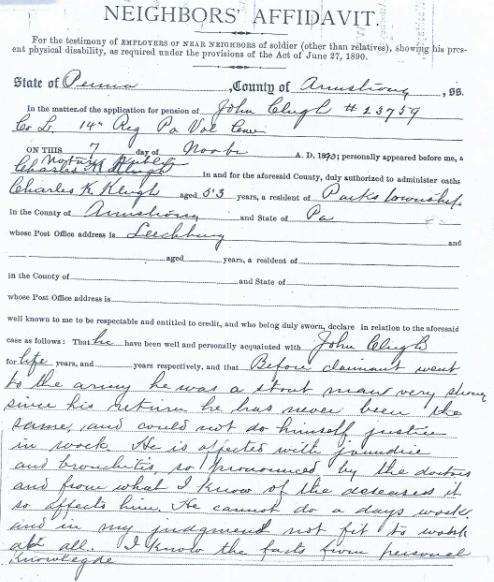 NEIGHBORS' AFFIDAVIT.
For the testimony of EMPLOYERS OR NEAR NEIGHBORS of soldier (other than relatives), showing his pres-
ent physical disability, as required under the provisions of the Act of June 27, 1890.
State of Penna, County of Armstrong, SS.
In the matter of the application for pension of John Clugh # 23759
Co L, 14" Reg Pa Vol Cav
ON THIS 7 day of Novbr A. D. 1890; personally appeared before me, a
Notary Public
Charles K Klugh in and for the aforesaid County, duly authorized to administer oaths
Charles K. Klugh aged 53 years, a resident of Parks township
in the County of Armstrong and State of Pa
whose Post Office address is Leechburg and
aged years, a resident of
in the County of and State of
whose Post Office address is
well known to me to be respectable and entitled to credit, and who being duly sworn, declare in relation to the aforesaid
case as follows: That he have been well and personally acquainted with John Clugh
for life years, and years respectively, and that Before claimant went
to the army he was a stout man very strong
since his return he has never been the
same, and could not do himself justice
in work. He is affected with jaundice
and bronchitis, so pronounced by the doctors
and from what I know of the deseases it
so affects him. He cannot do a days work,
and in my judgment not fit to work
at all. I know the facts from personal
knowlegde